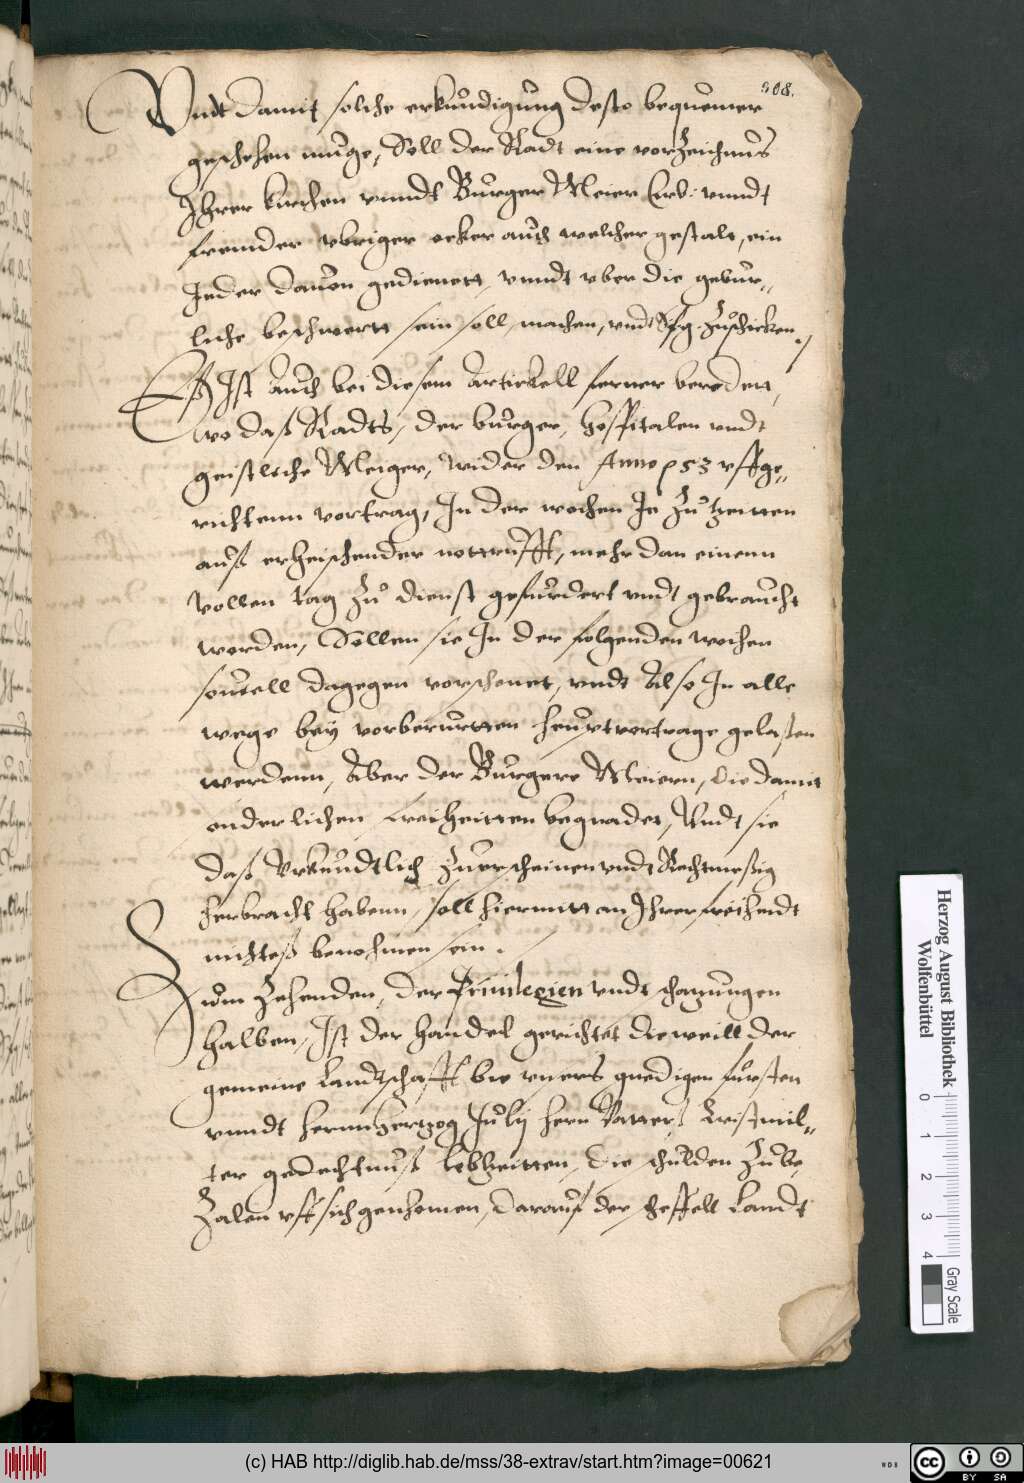 308.
Vndt damit solche erkundigung desto bequemer
geschehen muge, Soll der Radt eine vorzeichnus
Ihrer kirchen vnndt Burger Meier Curd. vnndt
frembder vbriger ecker auch welcher gestalt, ein
Jeder dauon gedienett, vnndt vber die gebur-
liche beschwertt sein soll, machen, vndt S.f.g. Zuschicken
Eß Ist auch bei diesem Artickell ferner beredett,
wo daß Radts, der burger, hospitalen vndt
geistliche Meiger, wider den Anno p 53 vffge-
richtenn vortrag, In der wochen Je Zu Zeitten
auß erheischender notturfft, mehr dan einenn
vollen tag zu dienst gefurdert vndt gebraucht
worden, Sollen sie In der folgenden wochen
souiell dagegen vorschonet, vndt Also In alle
wege bey vorberurtten heubtvortrage gelaßen
werdenn, Aber der Burgere Meiern, die damit
onderlichen freiheitten begnadet, Vndt sie
daß Vrkundtlich Zuerscheinen vndt Rechtmeßig
herbracht habenn, soll hiermitt an Ihrer freiheidt
nichteß benohmen sein.
Zum Zehenden, der Priuilegien vndt schatzungen
halben, Ist der handel gerichtet dieweill der
gemeine Landtschafft bie vnsers gnedigen fursten
vnndt herrn herzog July hern Vatterß Cristmil-
ter gedechtnuß lebzeitten, die schulden Zube-
Zalen vff sich genhomen, darauf der Landt
(c) HAB http://diglib.hab.de/mss/38-extrav/start.htm?image=00621
Herzog August Bibliothek
Wolfenbüttel
0 1 2 3 4
Gray Scale
WDB
cc BY SA